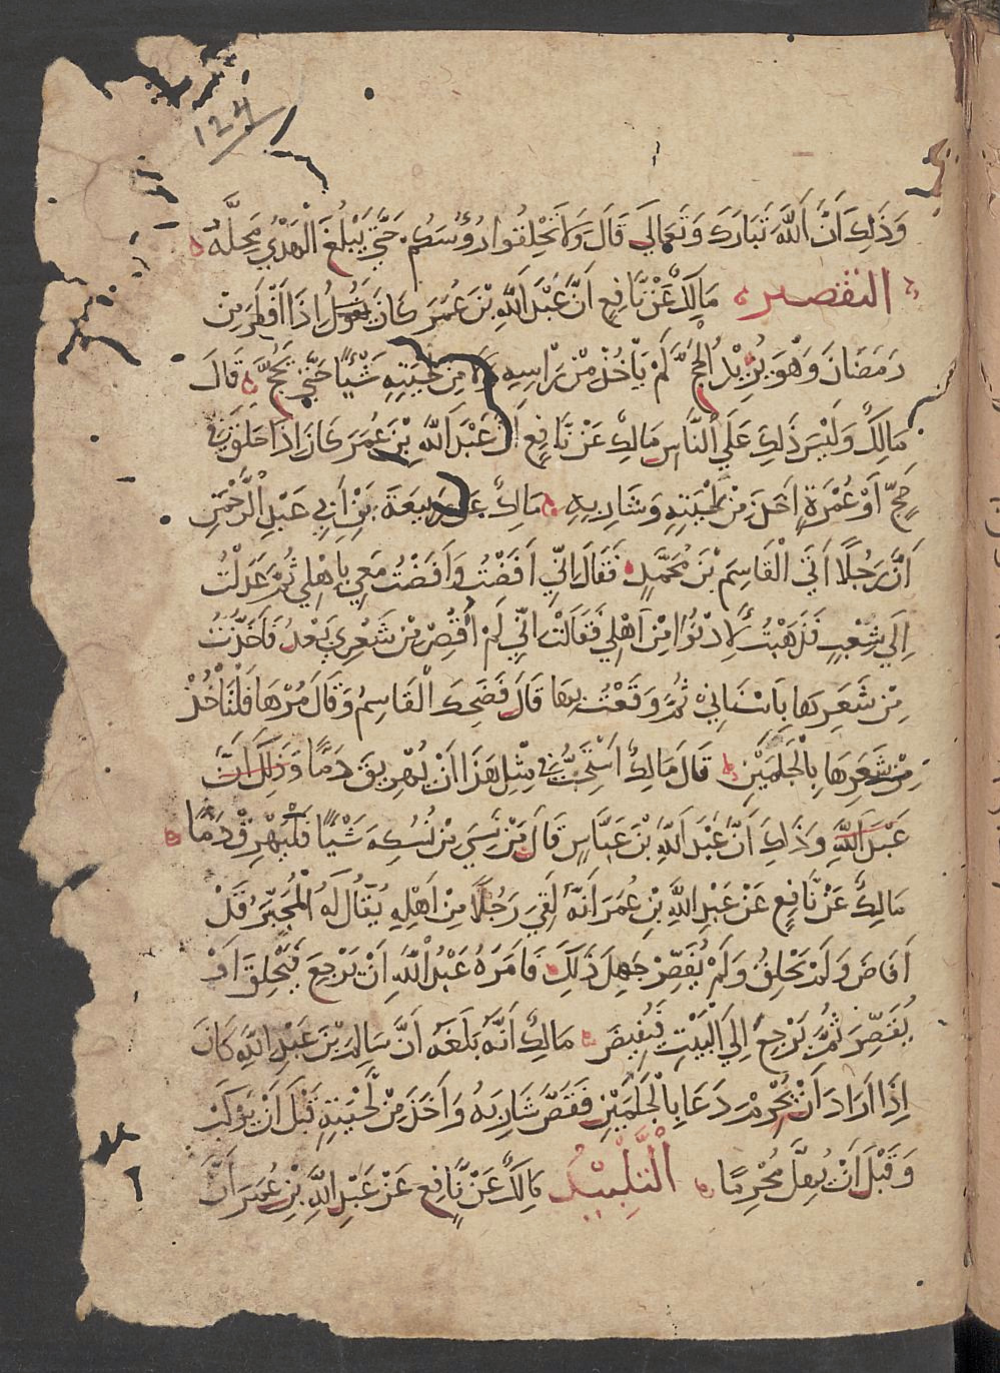 124
وَذَلِكَ أَنَّ اَللَّهَ تَبَارَكَ وَتَعَالَى قَالَ وَلَا تَحْلِقُوا رُؤُسَكُم حَتَّى يَبْلُغَ الْهَدْيُ مَحِلَّهُ
التقصير مَالِكٌ عَنْ نَّافِعٍ أَنَّ عَبْدَ اَللَّهِ بْنَ عُمَرَ كَانَ يَقُولُ إِذَا أَفْطَرَ مِنْ
رَمَضَانَ وَهْوَ يُرِيْدُ الْحَجَّ لَمْ يَأْخُذْ مِنْ رَّأْسِهِ وَلَا مِنْ لِحْيَتِهِ شَيْئًا حَتَّى يَحُجَّ قَالَ
مَالِكٌ وَلَيْسَ ذَلِكَ عَلَى اْلنَّاسِ مَالِكٌ عَنْ نَافِعٍ أَنَّ عَبْدَ اَللَّهِ بْنَ عُمَرَ كَانَ إِذَا حَلَقَ فِي
حَجٍّ أَوْ عُمْرَةٍ أَخَذَ مِنْ لِحْيَتِهِ وَشَارِبِهِ مَالِكٌ عَن رَبِيعَةَ بْنِ أَبِي عَبْدِ الْرَّحْمَنِ
أَنَّ رَجُلًا أَتَى الْقَاسِمَ بْنَ مُحَمَّدٍ فَقَالَ إِنِّي أَفَضْتُ وَأَفَضْتُ مَعِي بِأَهْلِي ثُمَّ عَدَلْتُ
إِلَى شِعْبٍ فَذَهَبْتُ لِأَدْنُوا مِنْ أَهْلِي فَقَالَتْ إِنِّي لَمْ أُقَصِّرْ مِنْ شَعْرِي بَعْدُ فَأَخَذْتُ
مِنْ شَعَرِهَا بِأَسْنَانِيْ ثُمَّ وَقَعْتُ بِهَا قَالَ فَضَحِكَ الْقَاسِمُ وَقَالَ مُرْهَا فَلْتَأْخُذْ
مِنْ شَعَرِهَا بِالْجَلَمَيْنِ قَالَ مَالِكٌ أَسْتَحِبُّ فِي مِثْلِ هَذَا أَنْ يُهْرِيقَ دَمًا وَذَلِكَ أَنَّ
عَبْدَ اللَّهِ وَذَلِكَ أَنَّ عَبْدَ اَللَّهِ بْنَ عَبَّاسٍ قَالَ مَنْ نَسِيَ مِنْ نُسُكِهِ شَيْئًا فَلْيُهْرِقْ دَمًا
مَالِكٌ عَنْ نَّافِعٍ عَنْ عَبْدِ اللَّهِ بْنِ عُمَرَ أَنَّهُ لَقِيَ رَجُلًا مِنْ أَهْلِهِ يُقَالُ لَهُ الْمُجَبَّرُ قَدْ
أَفَاضَ وَلَمْ يَحْلِقْ وَلَمْ يُقَصِّرْ جَهِلَ ذَلِكَ فَأَمَرَهُ عَبْدُ اْللَّهِ أَنْ يَرْجِعَ فَيَحْلِقَ أَوْ
يُقَصِّرَ ثُمَّ يَرْجِعَ إِلَى الْبَيْتِ فَيُفِيضَ مَالِكٌ أَنَّهُ بَلَغَهُ أَنَّ سَالِمَ بْنَ عَبْدِ اللَّهِ كَانَ
إِذَا أَرَادَ أَنْ يُحْرِمَ دَعَا بِالْجَلَمَيْنِ فَقَصَّ شَارِبَهُ وَأَخَذَ مِنْ لِّحْيَتِهِ قَبْلَ أَنْ يَرْكَبَ
وَقَبْلَ أَنْ يُهِلَّ مُحْرِمًا الْتَّلْبِيْدُ مَالِكٌ عَنْ نَّافِعٍ عَنْ عَبْدِ اللَّهِ بْنِ عُمَرَ أَنَّ